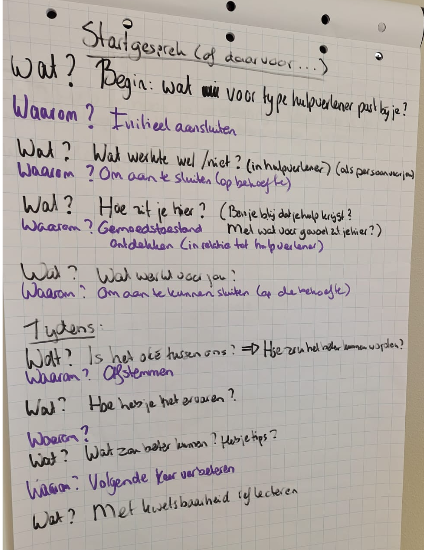 Startgesprek (of daarvoor...)
Wat? Begin: wat voor type hulpverlener past bij je?
Waarom? Initieel aansluiten
Wat? Wat werkte wel/niet? (in hulpverlener) (als persoon van jou)
Waarom? Om aan te sluiten (op behoefte)
Wat? Hoe zit je hier? (Ben je blij dat je hulp krijgt?
Waarom? Gemoedstoestand Met wat voor gevoel zit je hier?)
ontdekken (in relatie tot hulpverlener)
Wat? Wat werkt voor jou?
Waarom? Om aan te kunnen sluiten (op de behoefte)
Tijdens:
Wat? Is het oké tussen ons? ⇒ Hoe zou het beter kunnen worden?
Waarom? Afstemmen
Wat? Hoe heb je het ervaren?
Waarom?
Wat? Wat zou beter kunnen? Heb je tips?
Waarom? Volgende keer verbeteren
Wat? Met kwetsbaarheid reflecteren